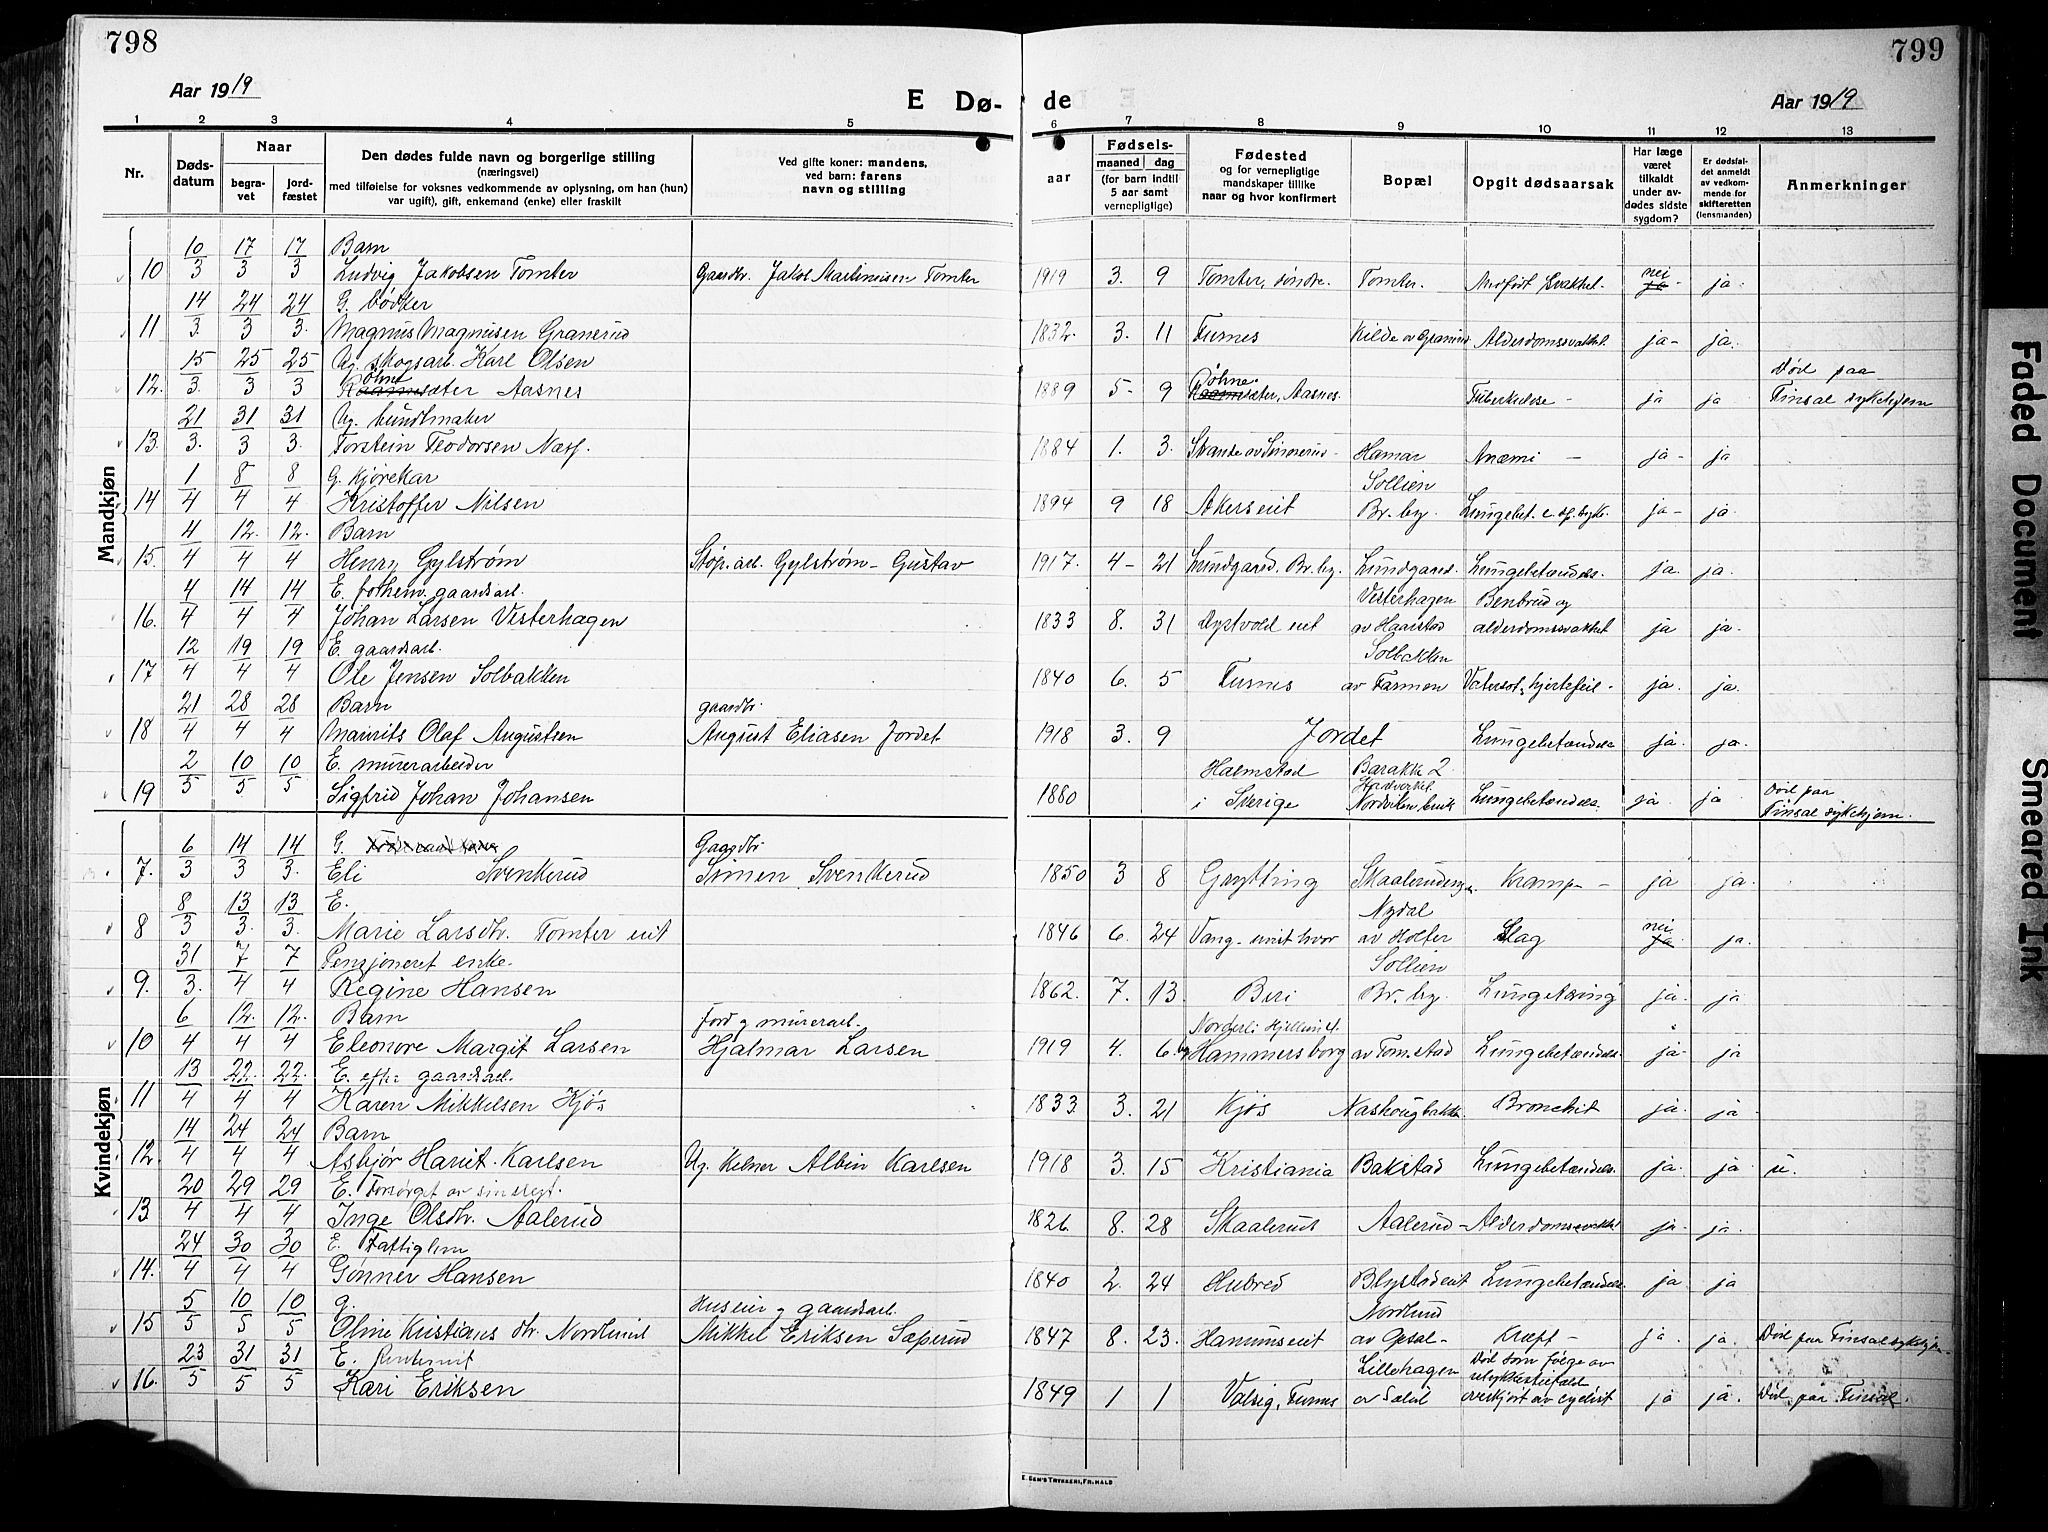 798
799
Aar 1919
E Dø-
de
Aar 1919
1 2 3 4 5 6 7 8 9 10 11 12 13
Nr.
Døds-datum
Naar
begra-vet
jord-fæstet
Den dødes fulde navn og borgerlige stilling
(næringsvei)
med tilføielse for voksnes vedkommende av oplysning, om han (hun)
var ugift), gift, enkemand (enke) eller fraskilt
Ved gifte koner: mandens,
ved barn: farens
navn og stilling
aar
Fødsels-
maaned dag
(for barn indtil
5 aar samt
vernepligtige)
Fødested
og for vernepligtige
mandskaper tillike
naar og hvor konfirmert
Bopæl
Opgit dødsaarsak
Har læge
været
tilkaldt
under av-
dødes sidste
sygdom?
Er dødsfal-
det anmeldt
av vedkom-
mende for
skifteretten
(lensmanden)
Anmerkninger
Mandkjøn
10/3 17/3 17/3 Barn
10 Ludvig Jakobsen Tomter Gaardbr. Jakob Martinusen Tomter 1919 3. 9 Tomter, søndre. Tomter. Medfødt svakhet. nei ja.
14/3 24/3 24/3 G. bødker
11 Magnus Magnusen Granerud 1832. 3. 11 Furnes Kilde av Granerud Alderdomssvakhet. ja ja.
15/3 25/3 25/3 Ug. skogsarb. Karl Olsen
12. øhnesæter Aasnes 1889 5 9 øhnesæter, Aasnes. Tuberkulose ja ja Død paa Finsal sykehjem
21/3 31/3 31/3 Ug. buntmaker
13. Torstein Teodorsen Næss. 1884 1. 3. Strande av Simenrud Hamar Anæmi ja ja
1/4 8/4 8/4 G. Kjørekar
14 Kristoffer Nilsen 1894 9 18 Akerseiet Sollien Br. by. ja ja.
4/4 12/4 12/4 Barn
15. Henry Gylstrøm Støp. arb. Gylstrøm Gustav 1917. 4 21 Lundgaard, Br. by. Lundgaard. Lungebetændels. ja. ja.
4/4 14/4 14/4 E. forhenv. gaardsarb.
16. Johan Larsen Vesterhagen 1833 8. 31 Dystvold eiet Vesterhagen av Haarstad Benbrud og alderdomssvakhet ja ja.
12/4 19/4 19/4 E. gaardsarb.
17 Ole Jensen Solbakken 1840 6. 5 Furnes Solbakken av Farmen Vatersot, hjertefeil. ja. ja.
21/4 28/4 28/4 Barn gaardbr.
18 Maurits Olaf Augustsen August Eliasen Jordet 1918 3. 9 Jordet Lungebetændels ja. ja.
2/5 10/5 10/5 E. murerarbeider
19 Sigfrid Johan Johansen 1880 Halmstad i Sverige Barakke 2 Nordviken bruk Lungebetændels. ja ja Død paa Finsal sykehjem.
Kvindekjøn
6/3 14/3 14/3 G. Gaardbr.
7. Eli Svenkerud Simen Svenkerud 1850 3 8 Grytting Skaalerudeng Kramp ja ja.
8/3 13/3 13/3 E.
8 Marie Larsdtr. Tomter eiet 1846 6. 24 Vang uvist hvor Nydal av Holter Slag nei ja.
31/3. 7/4 7/4 Pensjoneret enke.
9. Regine Hansen 1862. 7. 13. Biri Sollien Br. by. Lungetæring ja. ja
6/4 12/4 12/4 Barn Jord og murerarb.
10 Eleonore Margit Larsen Hjalmar Larsen 1919 4. 6 Norderli Hjellum 4. Hammersborg av Tomstad Lungebetændels. ja ja
13/4 22/4 22/4 E. efter gaardsarb.
11 Karen Mikkelsen Kjøs 1833. 3. 21 Kjøs Nashougbakken Bronchit ja. ja
14/4 24/4 24/4 Barn
12. Asbjør Harriet Karlsen Ug. Kelner Albin Karlsen 1918 3. 15 Kristiania Bakstad Lungebetændels. ja. ja u.
20/4 29/4 29/4 E. Forsørget av sin slegt.
13 Inge Olsdtr. Aalerud 1826. 8. 28 Skaalerud Aalerud Alderdomssvakhet ja. ja.
24/4 30/4 30/4 E. Fattiglem
14. Gønner Hansen 1840 2. 24 Hubred Blystadeiet Lungebetændels ja ja
5/5 10/5 10/5 g. Huseier og gaardsarb.
15 Oline Kristians dtr. Nordlund Mikkel Eriksen Sæperud 1847 8. 23. Hanumseiet Nordlund av Opsal Kræft ja. ja. Død paa Finsal sykehjem
23/5 31/5 31/5 E.
16. Kari Eriksen 1849 1 1 Valsig, Furnes Lillehagen av Sælid Død som følge av ulykkestilfæld. overkjørt av cyclist ja ja. Død paa Finsal.
E. SEM'S TRYKKERI, FR.HALD
Faded Document
Smeared Ink